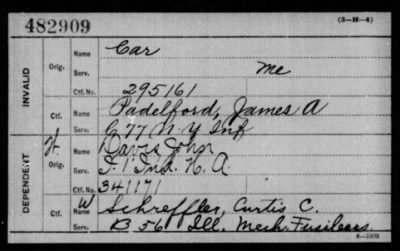 482909
(3-H-4)
INVALID
Orig.
Name Car
Serv. Me
Ctf. No. 295161
Ctf.
Name Padelford, James A
Serv. C 77 N.Y. Inf
DEPENDENT
W. Orig.
Name Davis John
Serv. I. 1 Ind. H. A.
Ctf. No. 341171
Ctf.
W Name Schreffler, Curtis C.
Serv. B. 56 Ill. Mech. Fusileers